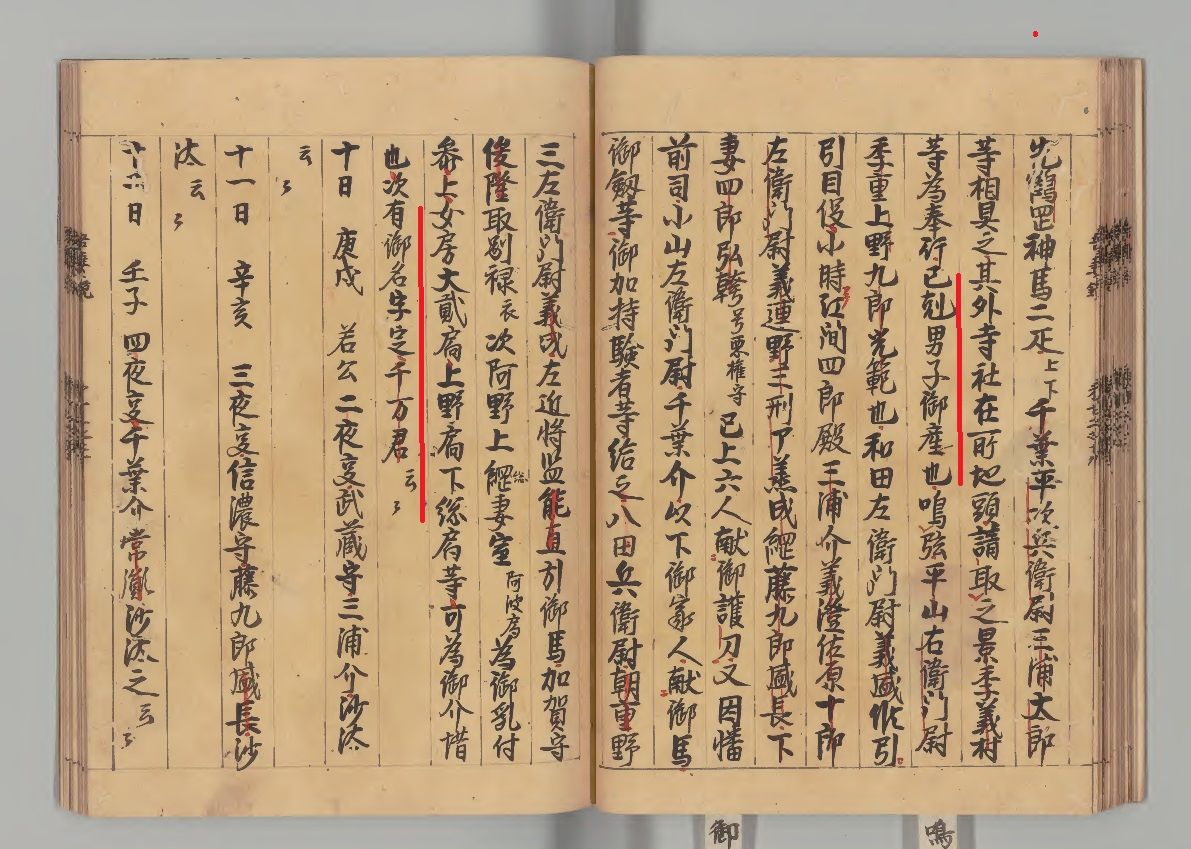 先鶴岡神馬二疋上下千葉平次兵衛尉三浦太郎
等相具之其外寺社在所地頭請取之景季義村
等為奉行已剋男子御産也鳴弦平山右衛門尉
季重上野九郎光範也和田左衛門尉義盛候引
引目役小時江間四郎殿三浦介義澄佐原十郎
左衛門尉義連野三刑部丞成綱藤九郎盛長下
妻四郎弘幹号悪権守已上六人献御護刀又因幡
前司小山左衛門尉千葉介以下御家人献御馬
御剱等御加持験者等給之八田兵衛尉朝重野
三左衛門尉義成左近将監能直引御馬加賀守
俊隆取別禄衣次阿野上総妻室阿波局為御乳付
参上女房大貳局上野局下総局等可為御介惜
也次有御名字定千万君云々
十日 庚戌 若公二夜事武蔵守三浦介沙汰
云々
十一日 辛亥 三夜事信濃守藤九郎盛長沙
汰云々
十二日 壬子 四夜事千葉介常胤沙汰之云々
鳴
御